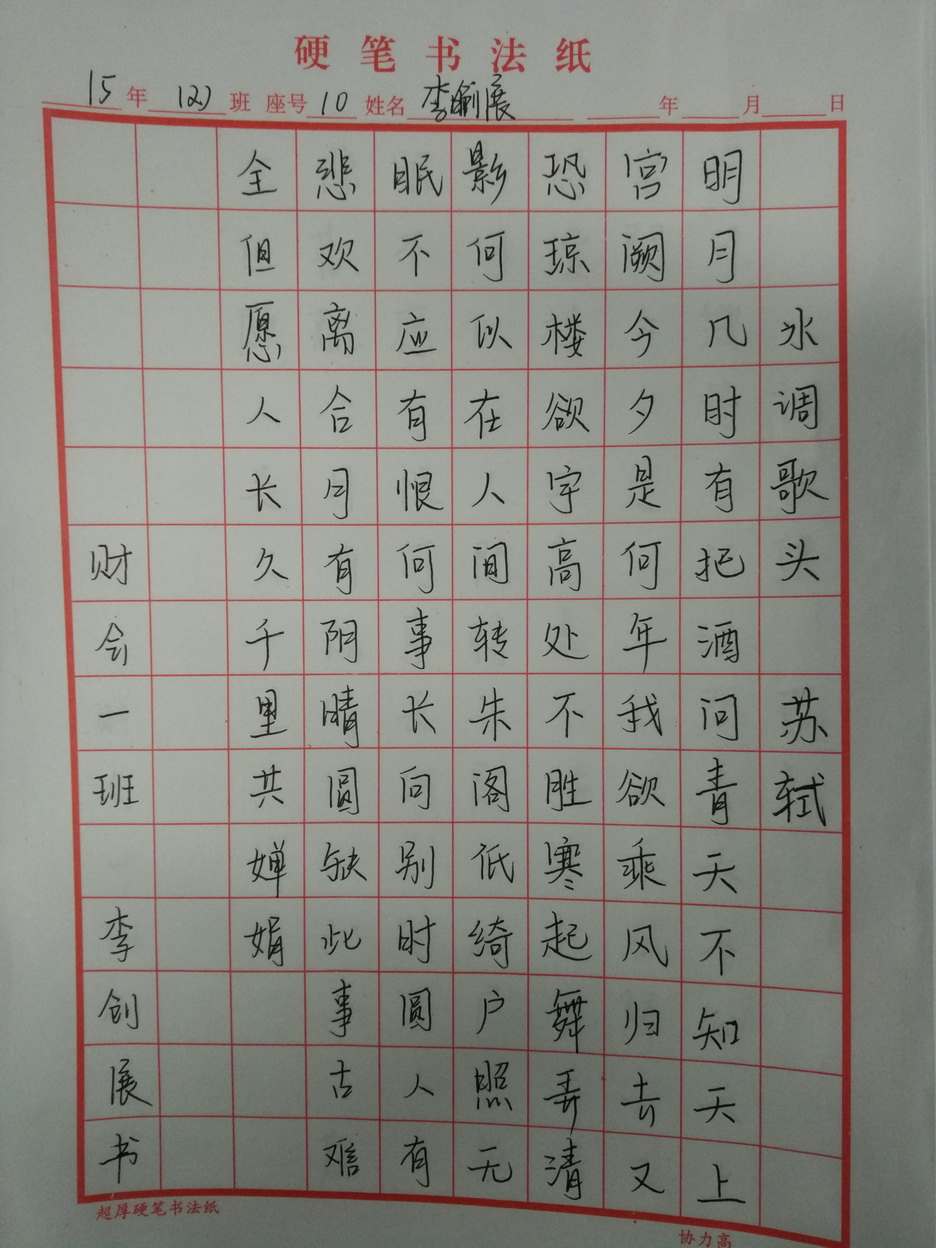 硬笔书法纸
15年 (2)班 座号10 姓名李创展 年 月 日
水调歌头 苏轼
明月几时有把酒问青天不知天上
宫阙今夕是何年我欲乘风归去又
恐琼楼欲宇高处不胜寒起舞弄清
影何似在人间转朱阁低绮户照无
眠不应有恨何事长向别时圆人有
悲欢离合月有阴晴圆缺此事古难
全但愿人长久千里共婵娟
财会一班 李创展书
超厚硬笔书法纸
协力高